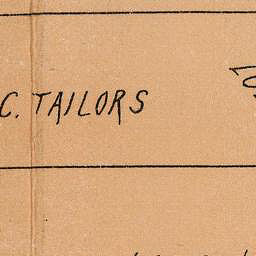 C. TAILORS